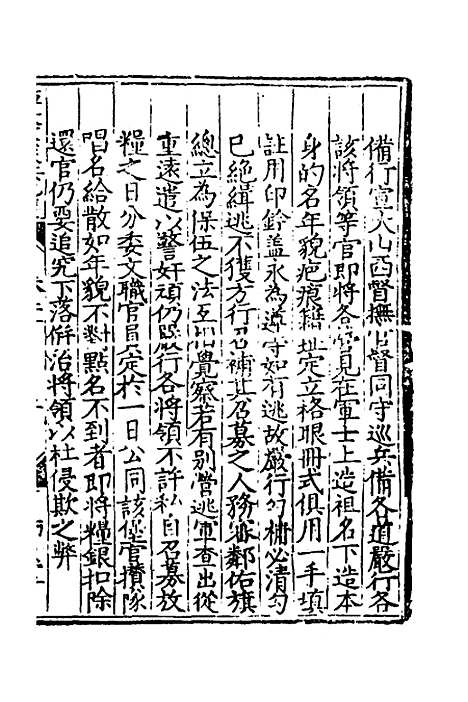 備行宣大山西督撫官督同守巡兵備各道嚴行各
該將領等官即將各營見在軍士上造祖名下造本
身的名年貌疤痕籍址定立格眼冊式俱用一手填
註用印鈐盖永為遵守如有逃故嚴行勾柵必清勾
已絶緝逃不獲方行召補其召募之人務審鄰佑旗
總立為保伍之法互相覺察若有别營逃軍查出從
重遠遣以警奸頑仍嚴行各將領不許私自召募放
糧之日分委文職官員定於一日公同該堡官攅隊
唱名給散如年貌不對點名不到者即將糧銀扣除
還官仍要追究下落併治將領以杜侵欺之弊